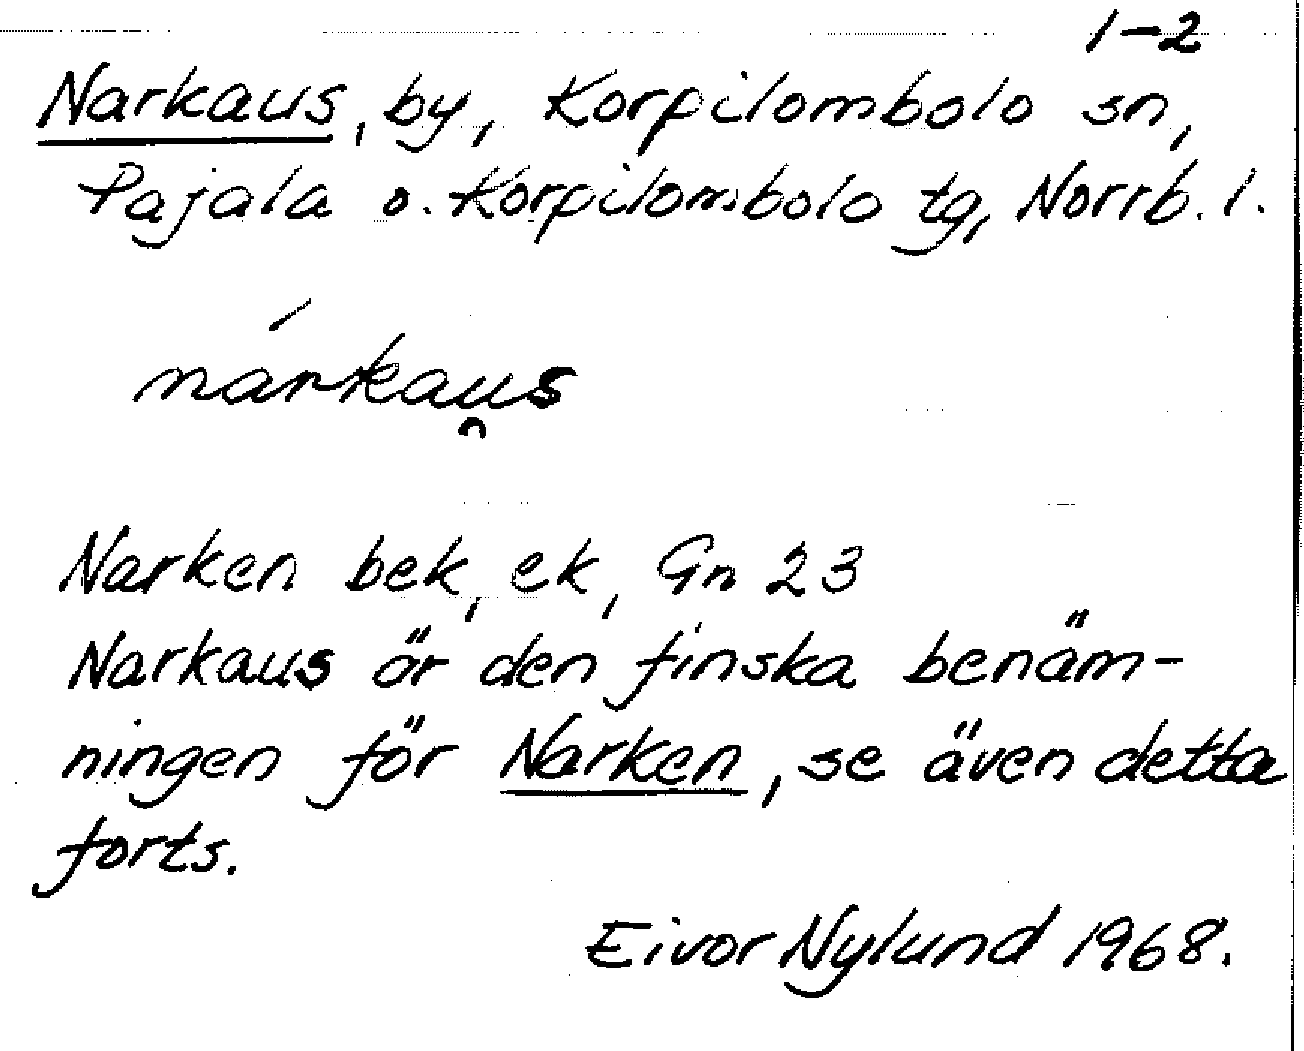 1-2
Narkaus, by, Korpilombolo sn,
Pajala o. Korpilombolo tg, Norrb. l.
nárkau̯s
Narken bek, ek, Gn 23
Narkaus är den finska benäm-
ningen för Narken, se även detta
forts.
Eivor Nylund 1968.